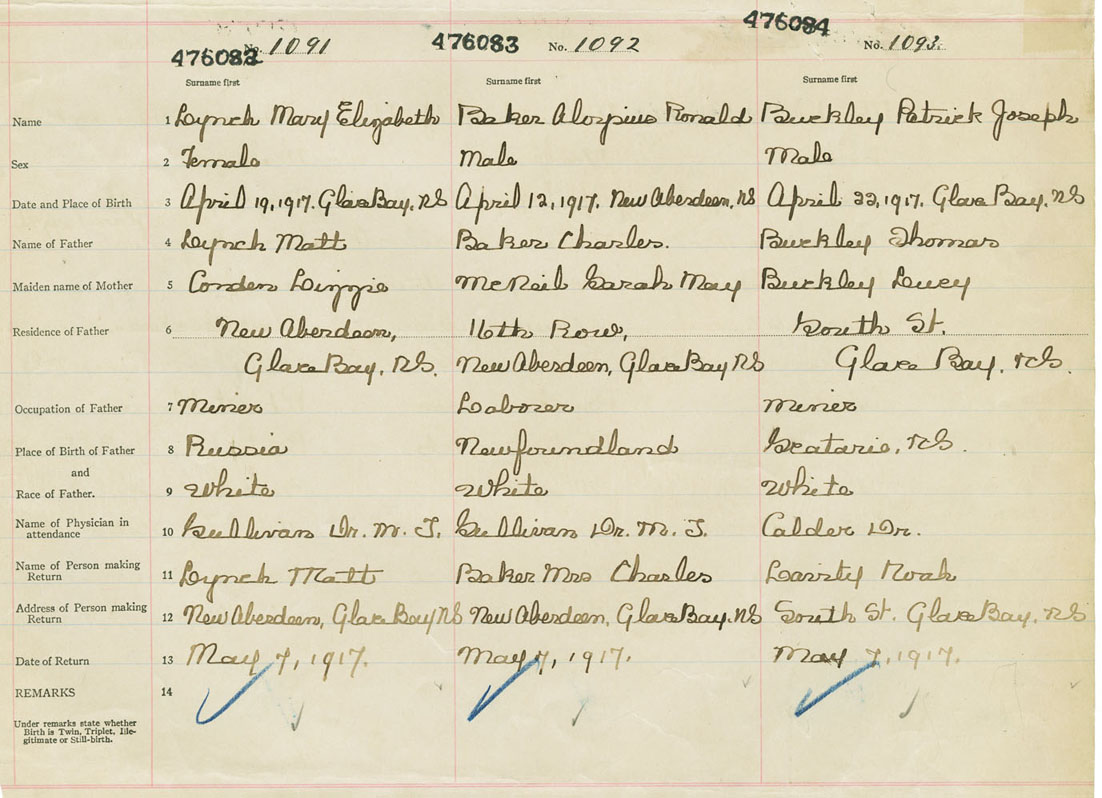 476082 No. 1091 476083 No. 1092 476084 No. 1093.
Surname first Surname first Surname first
Name 1 Lynch Mary Elizabeth Baker Aloysius Ronald Buckley Patrick Joseph
Sex 2 Female Male Male
Date and Place of Birth 3 April 19, 1917. Glace Bay, NS April 12, 1917. New Aberdeen, NS April 22, 1917. Glace Bay, NS
Name of Father 4 Lynch Matt Baker Charles. Buckley Thomas
Maiden name of Mother 5 Conden Lizzie McNeil Sarah May Buckley Lucy
Residence of Father 6 New Aberdeen, 16th Row, South St.
Glace Bay, NS. New Aberdeen, Glace Bay NS Glace Bay, NS.
Occupation of Father 7 Miner Laborer Miner
Place of Birth of Father 8 Russia Newfoundland Scatarie, NS.
and
Race of Father. 9 White White White
Name of Physician in
attendance 10 Sullivan Dr. M. T. Sullivan Dr. M. T. Calder Dr.
Name of Person making
Return 11 Lynch Matt Baker Mrs Charles Noah
Address of Person making
Return 12 New Aberdeen, Glace Bay NS New Aberdeen, Glace Bay. NS South St. Glace Bay, NS
Date of Return 13 May 7, 1917. May 7, 1917. May 7, 1917.
REMARKS 14
Under remarks state whether
Birth is Twin, Triplet, Ille-
gitimate or Still-birth.